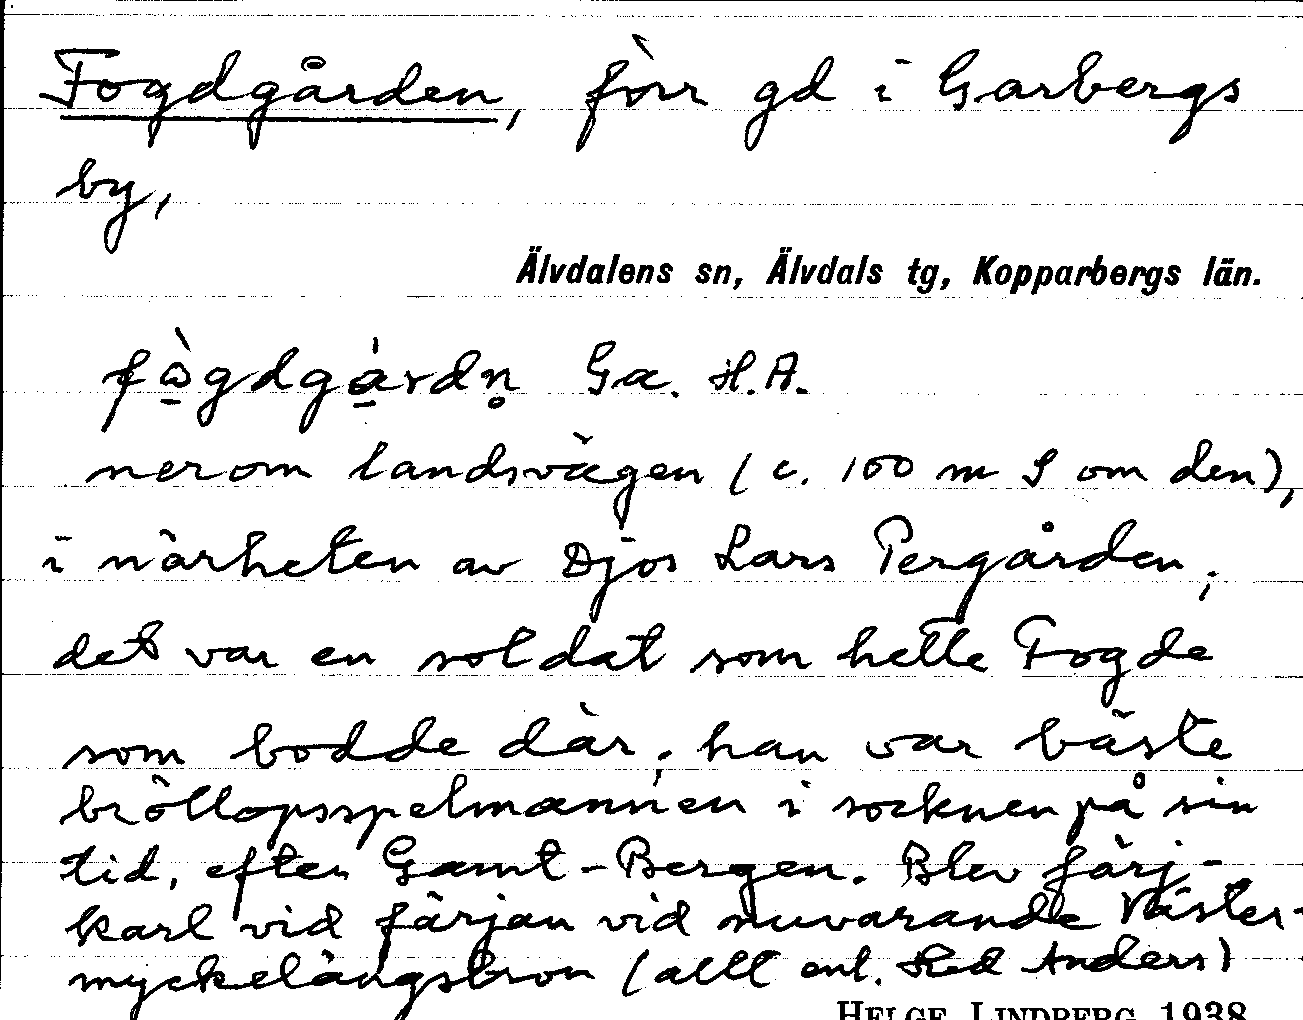 Fogdgården, förr gd i Garbergs
by,
Älvdalens sn, Älvdals tg, Kopparbergs län.
Ga. H.A.
nerom landsvägen (c. 100 m S om den),
i närheten av Djos Lars Pergården;
det var en soldat som hette Fogde
som bodde där; han var bäste
bröllopsspelmannen i socknen på sin
tid, efter Gamt-Bergen. Blev färj-
karl vid färjan vid nuvarande Väster-
myckelängsbron (allt enl. Anders)
HELGE LINDBERG 1938